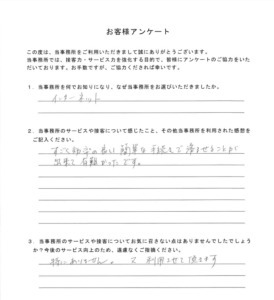 お客様アンケート
この度は、当事務所をご利用いただきまして誠にありがとうございます。
当事務所では、接客力・サービス力を強化する目的で、皆様にアンケートのご協力をいた
だいております。お手数ですが、ご協力くだされば幸いです。
1．当事務所を何でお知りになり、なぜ当事務所をお選びいただきましたか。
インターネット
2．当事務所のサービスや接客について感じたこと、その他当事務所を利用された感想を
ご記入ください。
簡単な手続きで済ませることが
出来て有難かったです。
3．当事務所のサービスや接客についてお気に召さない点はありませんでしたでしょう
か？今後のサービス向上のため、遠慮なくご指摘ください。
特にありません。又利用させて頂きます